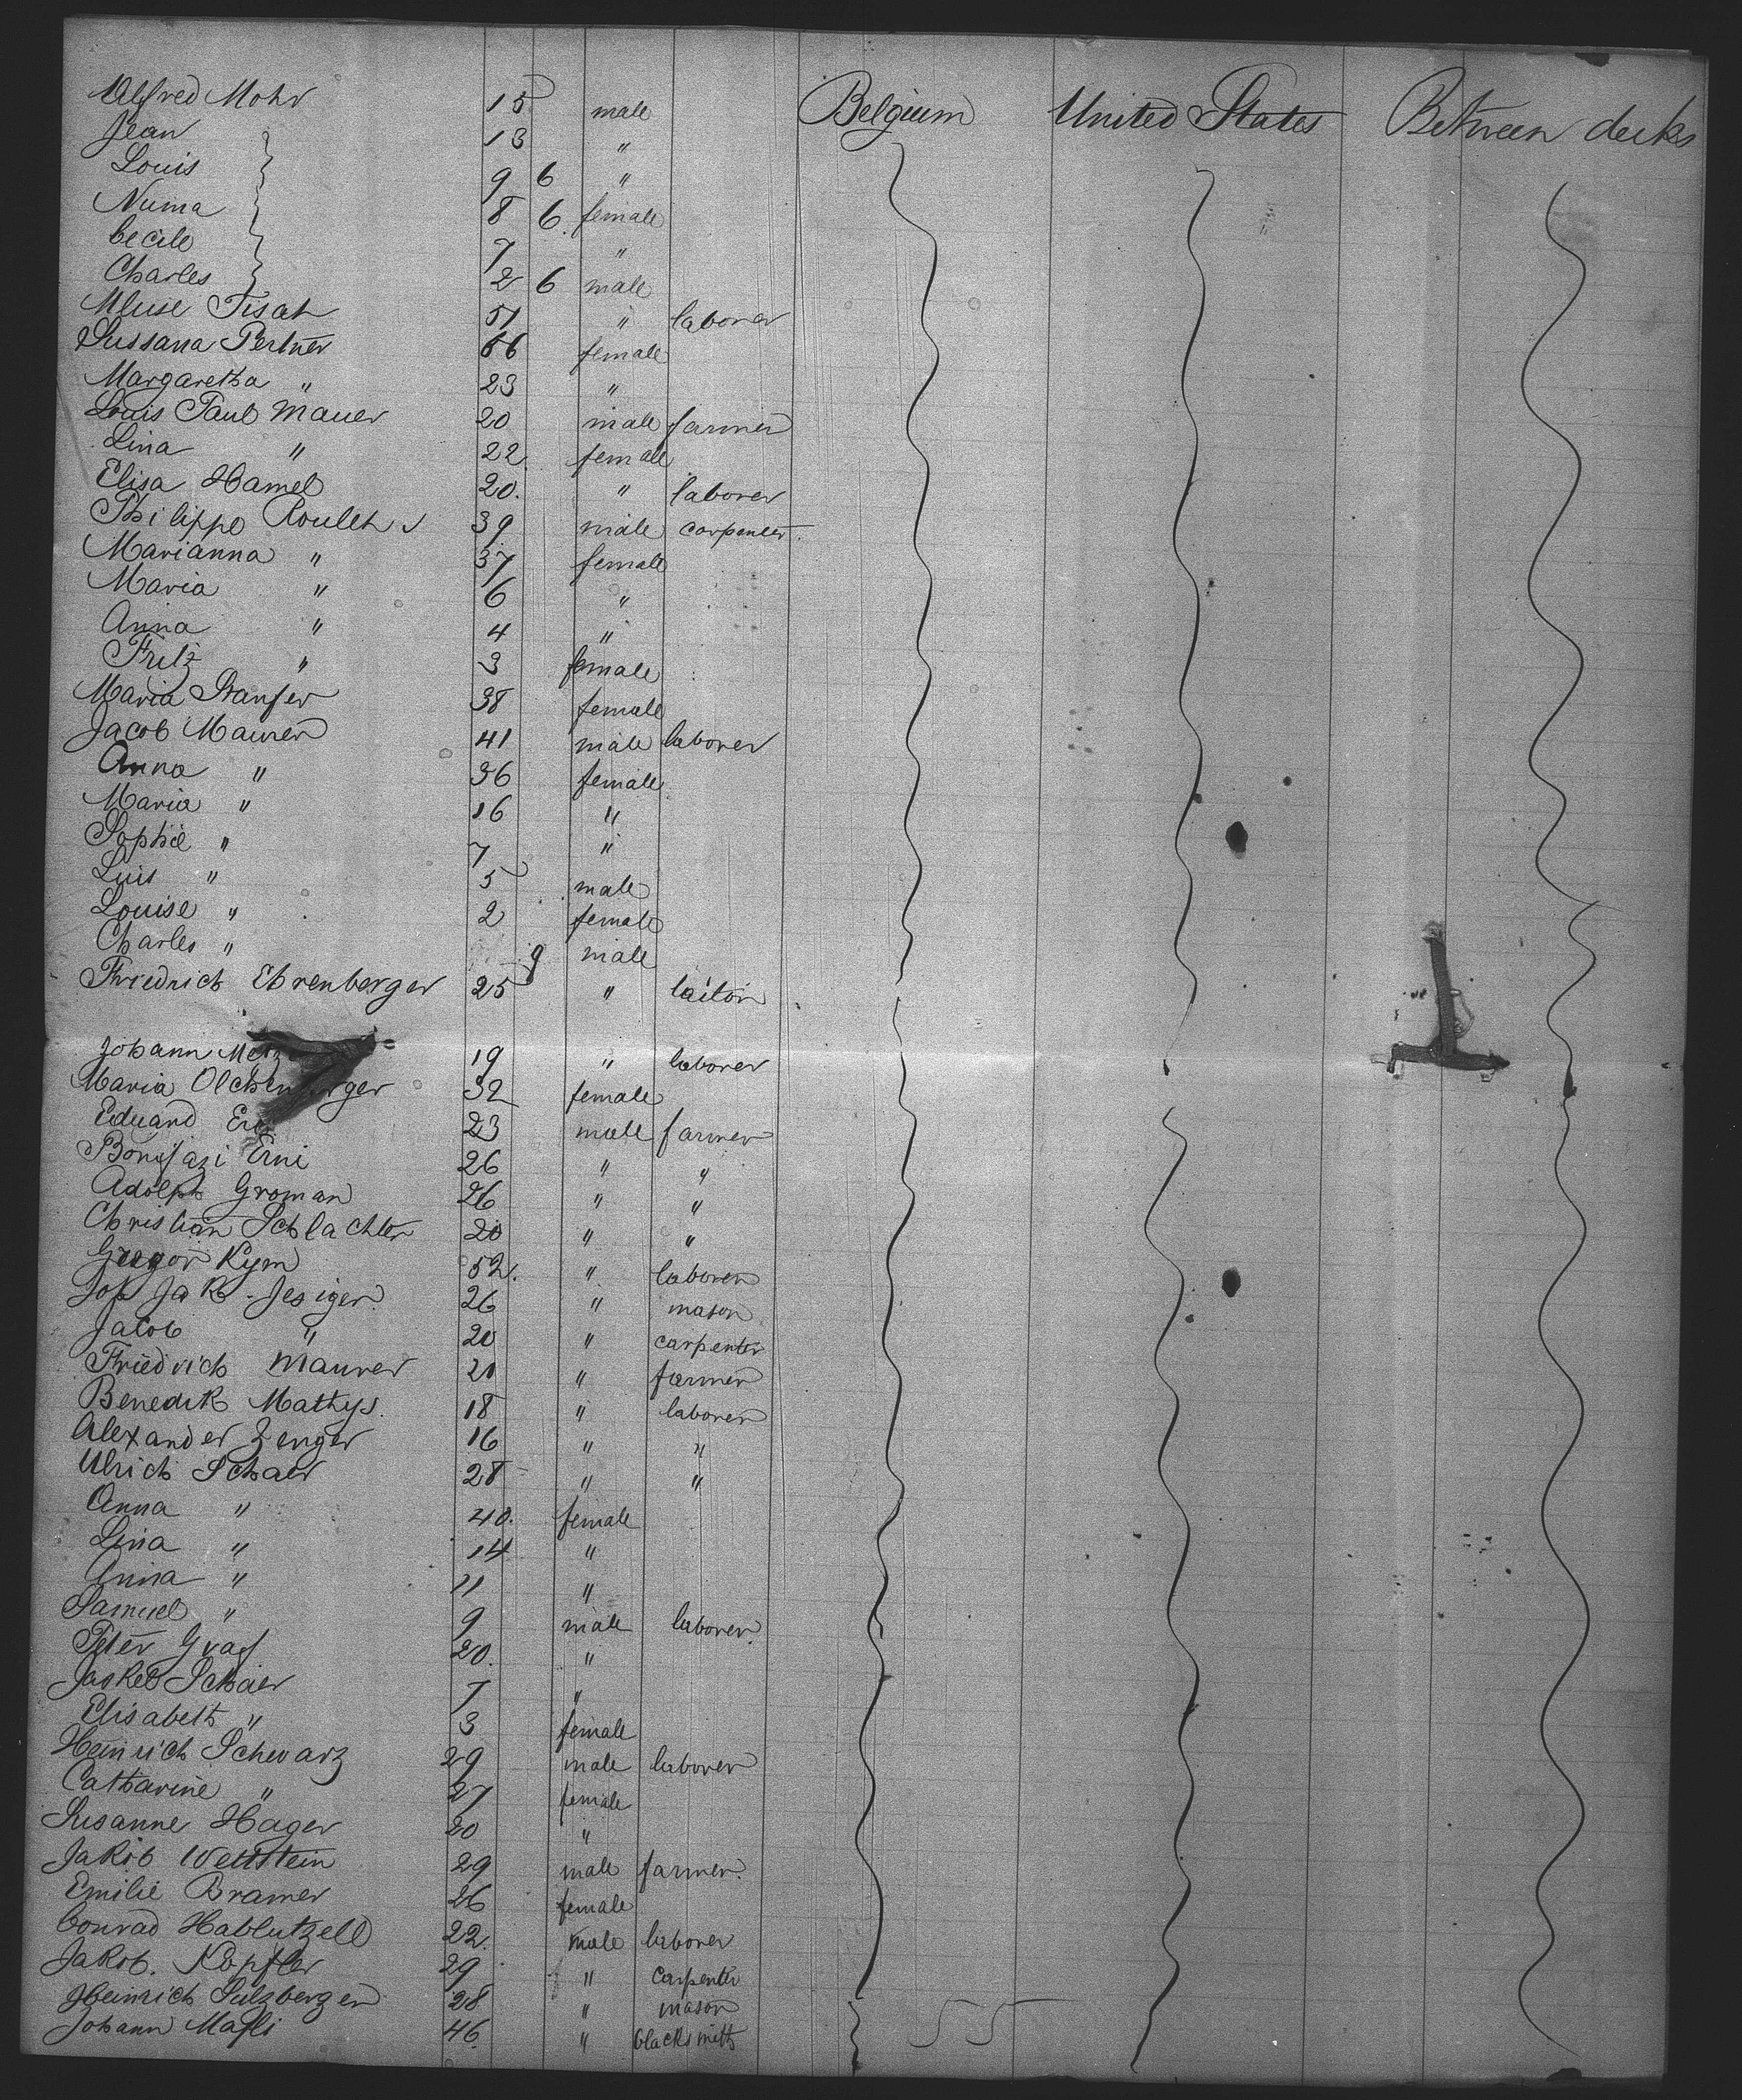 Alfred Mohr 15 male Belgium United States Between decks
Jean 13 "
Louis 9 6 "
Numa 8 6. female
Cecile 7 "
Charles 2 6 male
Tisah 51 " laborer
Sussana Pertner 56 female
Margaretha " 23 "
Louis Paul Mauer 20 male farmer
Lina " 22. female
Elisa Hamel 20. " laborer
Philippe Roulet 39 male carpenter.
Marianna " 37 female
Maria " 6 "
Anna " 4 "
Fritz " 3 female
Maria 38 female
Jacob Maurer 41 male laborer
Anna " 36 female
Maria " 16 "
Sophie " 7 "
Luis " 5 male
Louise " 2 female
Charles " 9 male
Friedrich Ehrenberger 25 " tailor
Johann 19 " laborer
Maria 32 female
Eduard 23 male farmer
Bonifazi Erni 26 " "
Adolph Groman 26 " "
Christian Schlachter 20 " "
Gregor Kym 52. " laborer
Jak. Jesiger 26 " mason
Jacob " 20 " carpenter
Friedrich Maurer 21 " farmer
Benedik Mathys. 18 " laborer
Alexander Zenger 16 " "
Ulrich Schaer 28 " "
Anna " 40. female
Lina " 14 "
Anna " 11 "
Samuel " 9 male laborer
Peter Graf 20. "
Schaer 7 "
Elisabeth " 3 female
Heinrich Schwarz 29 male laborer
Catharine " 27 female
Susanne Hager 20 "
Jakob Wettstein 29 male farmer.
Emilie Bramer 26 female
Conrad Hablutzell 22. male laborer
Jakob. Kopfler 29 " carpenter
Heinrich Sulzberger 28 " mason
Johann Mafli 46. " blacksmith
55